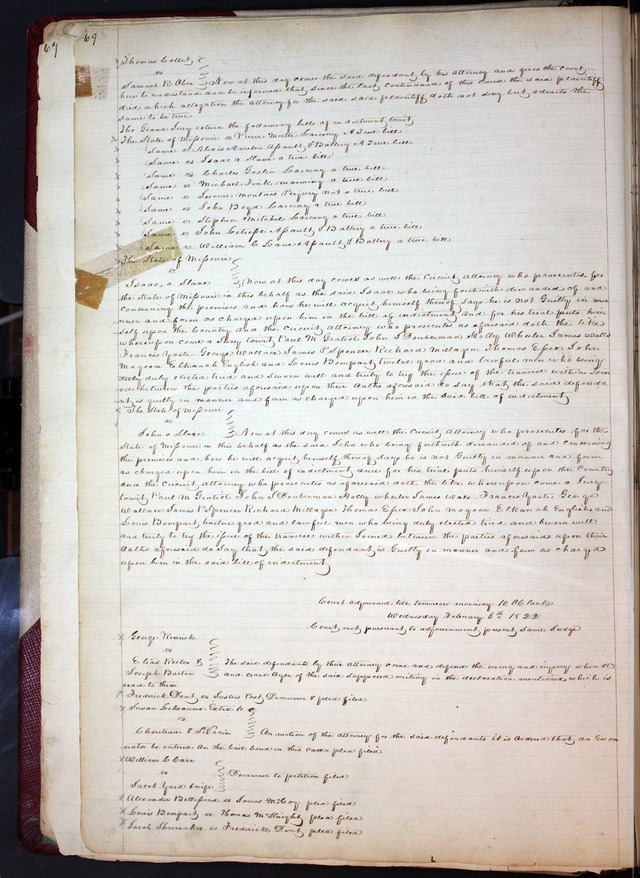 69 69
Thomas Collet
vs
Samuel R Ober Now at this day comes the said defendant by his attorney and gives the court
how to understand and be informed that since the last continuance of this cause the said plaintiff
did which allegation the attorney for the said plaintiff doth not deny but admits the
same to be true
The Grand Jury return the following bills of indictment towit
The State of Missouri vs Pierre Larceny A True bill
Same vs Alexis Amelin Assault & Battery A True bill
Same vs Isaac a Slave a true bill
Same vs Charles Gaslin Larceny a true bill
Same vs Michael Fink a true bill
Same vs Jerome Montais Perjury not a true bill
Same vs John Boyd Larceny a true bill
Same vs Stephen Mitchel Larceny a true bill
Same vs John Assault & Battery a true bill
Same vs William C Lane Assault & Battery a true bill
The State of Missouri
vs
Isaac, a Slave Now at this day comes as well the Circuit Attorney who prosecutes for
the State of Missouri in this behalf as the said Isaac who being forthwith demanded of and
concerning the premises and how he will acquit himself thereof Says he is Not Guilty in ma
nner and form as charged upon him in the bill of indictment and for his trial puts him
self upon the Country and the Circuit Attorney who prosecutes as aforesaid doth the like
whereupon come a Jury towit Paul M Gratiot John S Douberman Holly Wheeler James Walls
Francis Yoste George Wallace James P Spencer Richard Millagen Thomas Essex John
Magoon Elkanah English and Louis Bompart twelve good and lawful men who being
duly elected tried and sworn well and truly to try the issue of the traverse within Join
ed between the parties aforesaid upon their Oaths aforesaid do say that the said defenda
nt is guilty in manner and form as charged upon him in the said bill of indictment
The State of Missouri
vs
John a Slave Now at this day comes as well the Circuit Attorney who prosecutes for the
State of Missouri in this behalf as the said John who being forthwith demanded of and concerning
the premises and how he will acquit himself thereof Says he is Not Guilty in manner and form
as charged upon him in the bill of indictment and for his trial puts himself upon the Country
and the Circuit Attorney who prosecutes as aforesaid doth the like whereupon come a Jury
towit Paul M Gratiot John S Douberman Holly wheeler James Wals Francis Yoste George
Wallace James P Spencer Richard Millagen Thomas Essex John Magoon Elkanah English and
Louis Bompart twelve good and lawful men who being duly elected tried and sworn well
and truly to try the issue of the traverse within Joined between the parties aforesaid upon their
Oaths aforesaid do Say that the said defendant is Guilty in manner and form as charged
upon him in the said bill of indictment
Court adjourned till tomorrow morning 10 OClock
Wednesday February 6th 1822
Court met pursuant to adjournment present Same Judge
George Renrick
vs
Elias Rector & The said defendants by their attorney come and defend the wrong and injury when &c
Joseph Barton and crave Oyer of the said supposed writing in the declaration mentioned which is
read to them
Frederick Dent vs Justus Post Demurrer & plea filed
Susan Extrx &c
vs
Chouteau & St Vrain On motion of the attorney for the said defendants it is Ordered that an Exon
erate be entered On the bail bond in this case plea filed
William C Carr
vs Demurrer to petition filed
Jacob Yard & wife
Alexander Bellissime vs James McCoy plea filed
Louis Bompart vs Thomas McKnight plea filed
Jacob Shoemaker vs Frederick Dent plea filed